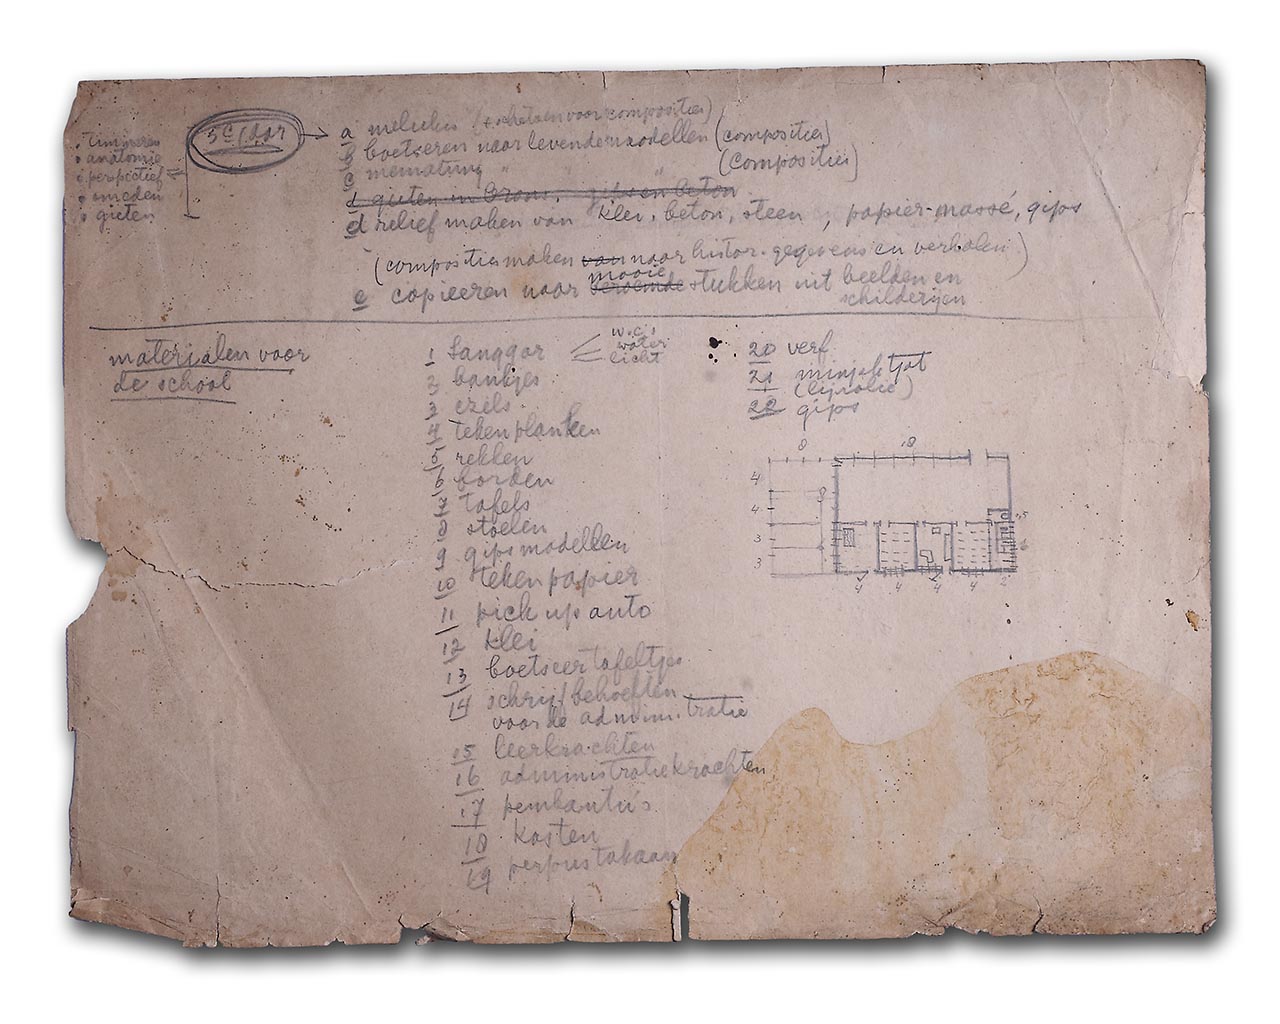 3e jaar
a melukis (+ schetsen voor composities)
b boetseren naar levende modellen (composities)
c mematung " " " (composities)
d gieten in brons, gips en beton
d relief maken van klei, beton, steen, papier-massé, gips
(composities maken van naar histor. gegevens en verhalen)
mooie
e copieeren naar beroemde stukken uit beelden en
schilderijen
anatomie
perspectief
gieten
materialen voor
de school
1 Sanggar
w.c.
water
licht
2 bankjes
3 ezels
4 tekenplanken
5 rekken
6 borden
7 tafels
8 stoelen
9 gipsmodellen
10 tekenpapier
11 pick up auto
12 klei
13 boetseertafeltjes
14 schrijfbehoeften
voor de administratie
15 leerkrachten
16 administratiekrachten
17 pembantu's
18 kasten
19 perpustakaan
20 verf
21 minjak tjat
(lijnolie)
22 gips
8 18
4
4
3
3
8
4 4 4 4 2